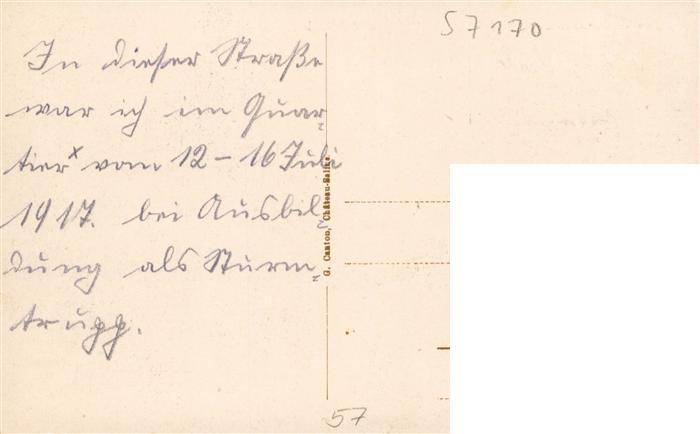 57170
In dieser Straße
war ich im Quar=
tier x vom 12 - 16 Juli
1917. bei Ausbil=
dung als Sturm=
trupp.
G. Cantou, Château-Salins
57